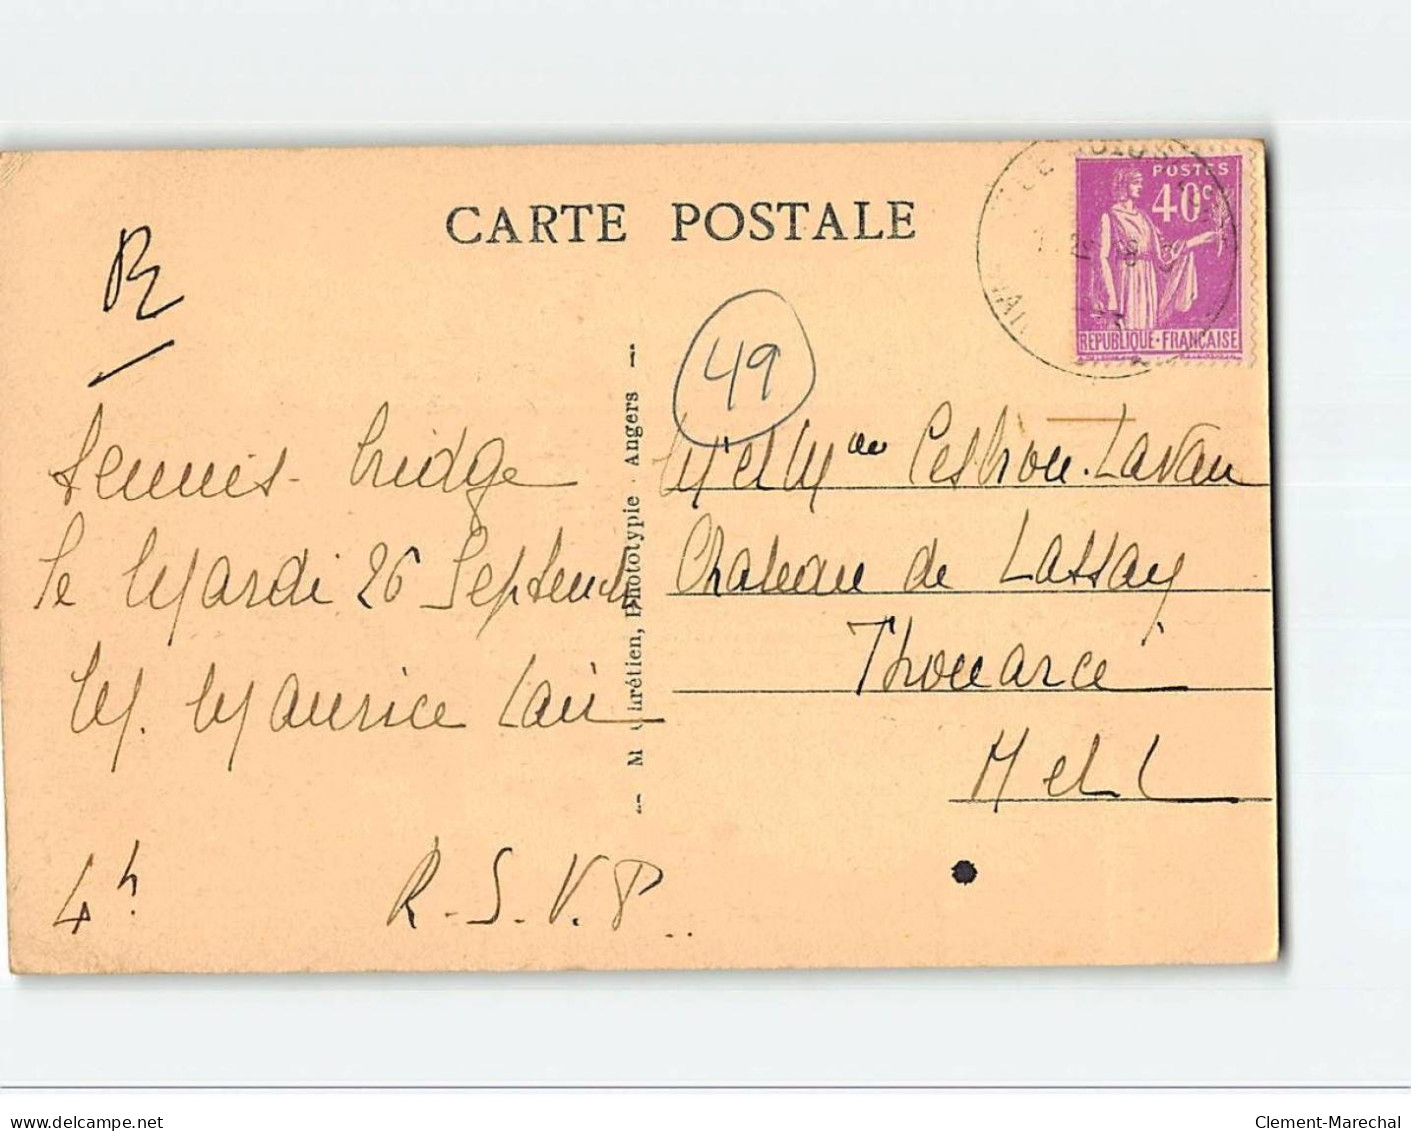 CARTE POSTALE
POSTES
40c
RÉPUBLIQUE-FRANÇAISE
R
49
Tennis-bridge
le Mardi 26 Septemb
M. Maurice
4h
R.S.V.P..
M. Chrétien, Phototypie - Angers
M et Mme
Chateau de Lassay
Thouarcé
M et L
delcampe.net
Clement-Marechal